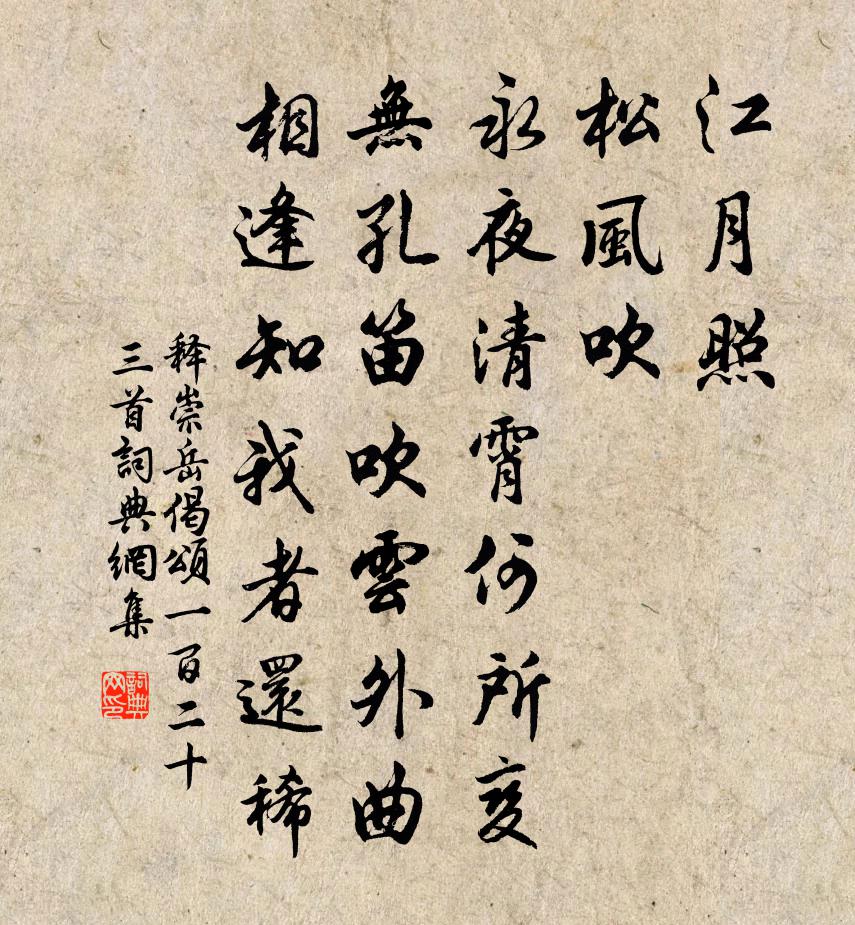 江月照
松風吹
永夜清霄何所变
無孔笛吹雲外曲
相逢知我者還稀
释崇岳偈頌一百二十
三首詞典網集
詞典
网印